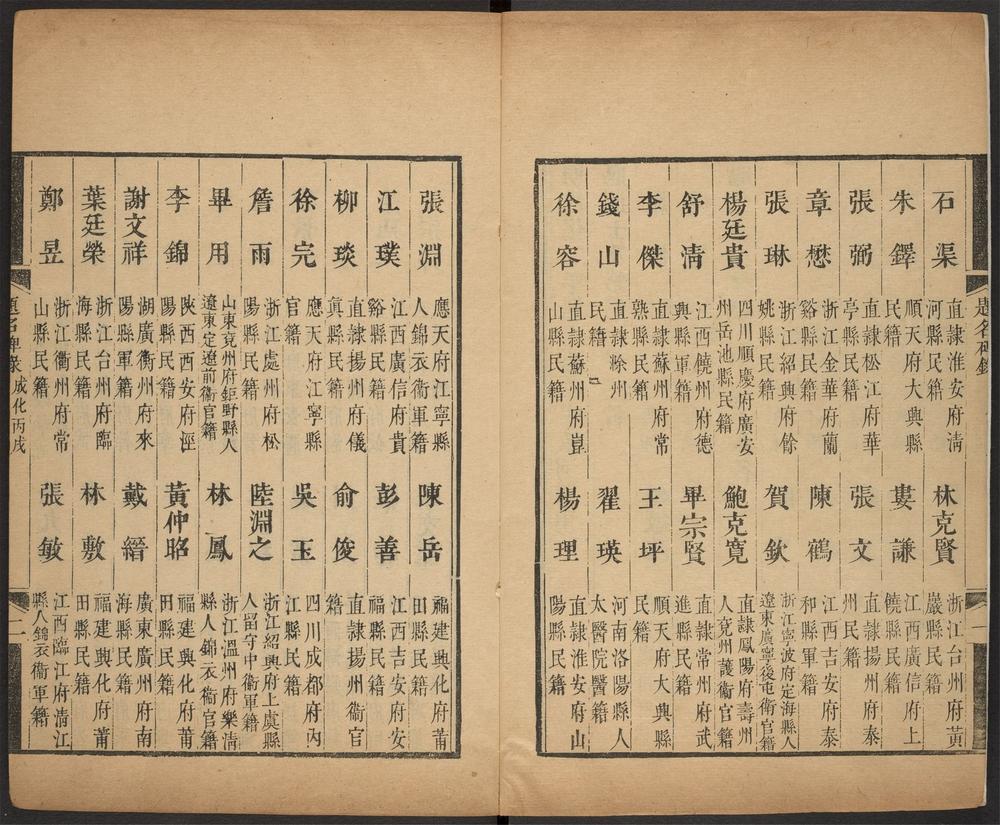 題名碑錄
一
石渠
直隸淮安府清
河縣民籍
林克賢
浙江台州府黃
巖縣民籍
朱鐸
順天府大興縣
民籍
婁謙
江西廣信府上
饒縣民籍
張弼
直隸松江府華
亭縣民籍
張文
直隸揚州府泰
州民籍
章懋
浙江金華府蘭
谿縣民籍
陳鶴
江西吉安府泰
和縣軍籍
張琳
浙江紹興府餘
姚縣民籍
賀欽
浙江寧波府定海縣人
遼東廣寧後屯衛官籍
楊廷貴
四川順慶府廣安
州岳池縣民籍
鮑克寬
直隸鳳陽府壽州
人兗州護衛官籍
舒清
江西饒州府德
興縣軍籍
畢宗賢
直隸常州府武
進縣民籍
李傑
直隸蘇州府常
熟縣民籍
王坪
順天府大興縣
民籍
錢山
直隸滁州
民籍
翟瑛
河南洛陽縣人
太醫院醫籍
徐容
直隸蘇州府崑
山縣民籍
楊理
直隸淮安府山
陽縣民籍
張淵
應天府江寧縣
人錦衣衞軍籍
陳岳
福建興化府莆
田縣民籍
江璞
江西廣信府貴
谿縣民籍
彭善
江西吉安府安
福縣民籍
柳琰
直隸揚州府儀
眞縣民籍
俞俊
直隸揚州衞官
籍
徐完
應天府江寧縣
官籍
吳玉
四川成都府內
江縣民籍
詹雨
浙江處州府松
陽縣民籍
陸淵之
浙江紹興府上虞縣
人留守中衞軍籍
畢用
山東兗州府鉅野縣人
遼東定遼前衞官籍
林鳳
浙江溫州府樂清
縣人錦衣衞官籍
李錦
陝西西安府涇
陽縣民籍
黃仲昭
福建興化府莆
田縣民籍
謝文祥
湖廣衡州府來
陽縣軍籍
戴縉
廣東廣州府南
海縣民籍
葉廷榮
浙江台州府臨
海縣民籍
林敷
福建興化府莆
田縣民籍
鄭昱
浙江衢州府常
山縣民籍
張敏
江西臨江府清江
縣人錦衣衞軍籍
題名碑錄 成化丙戌
二